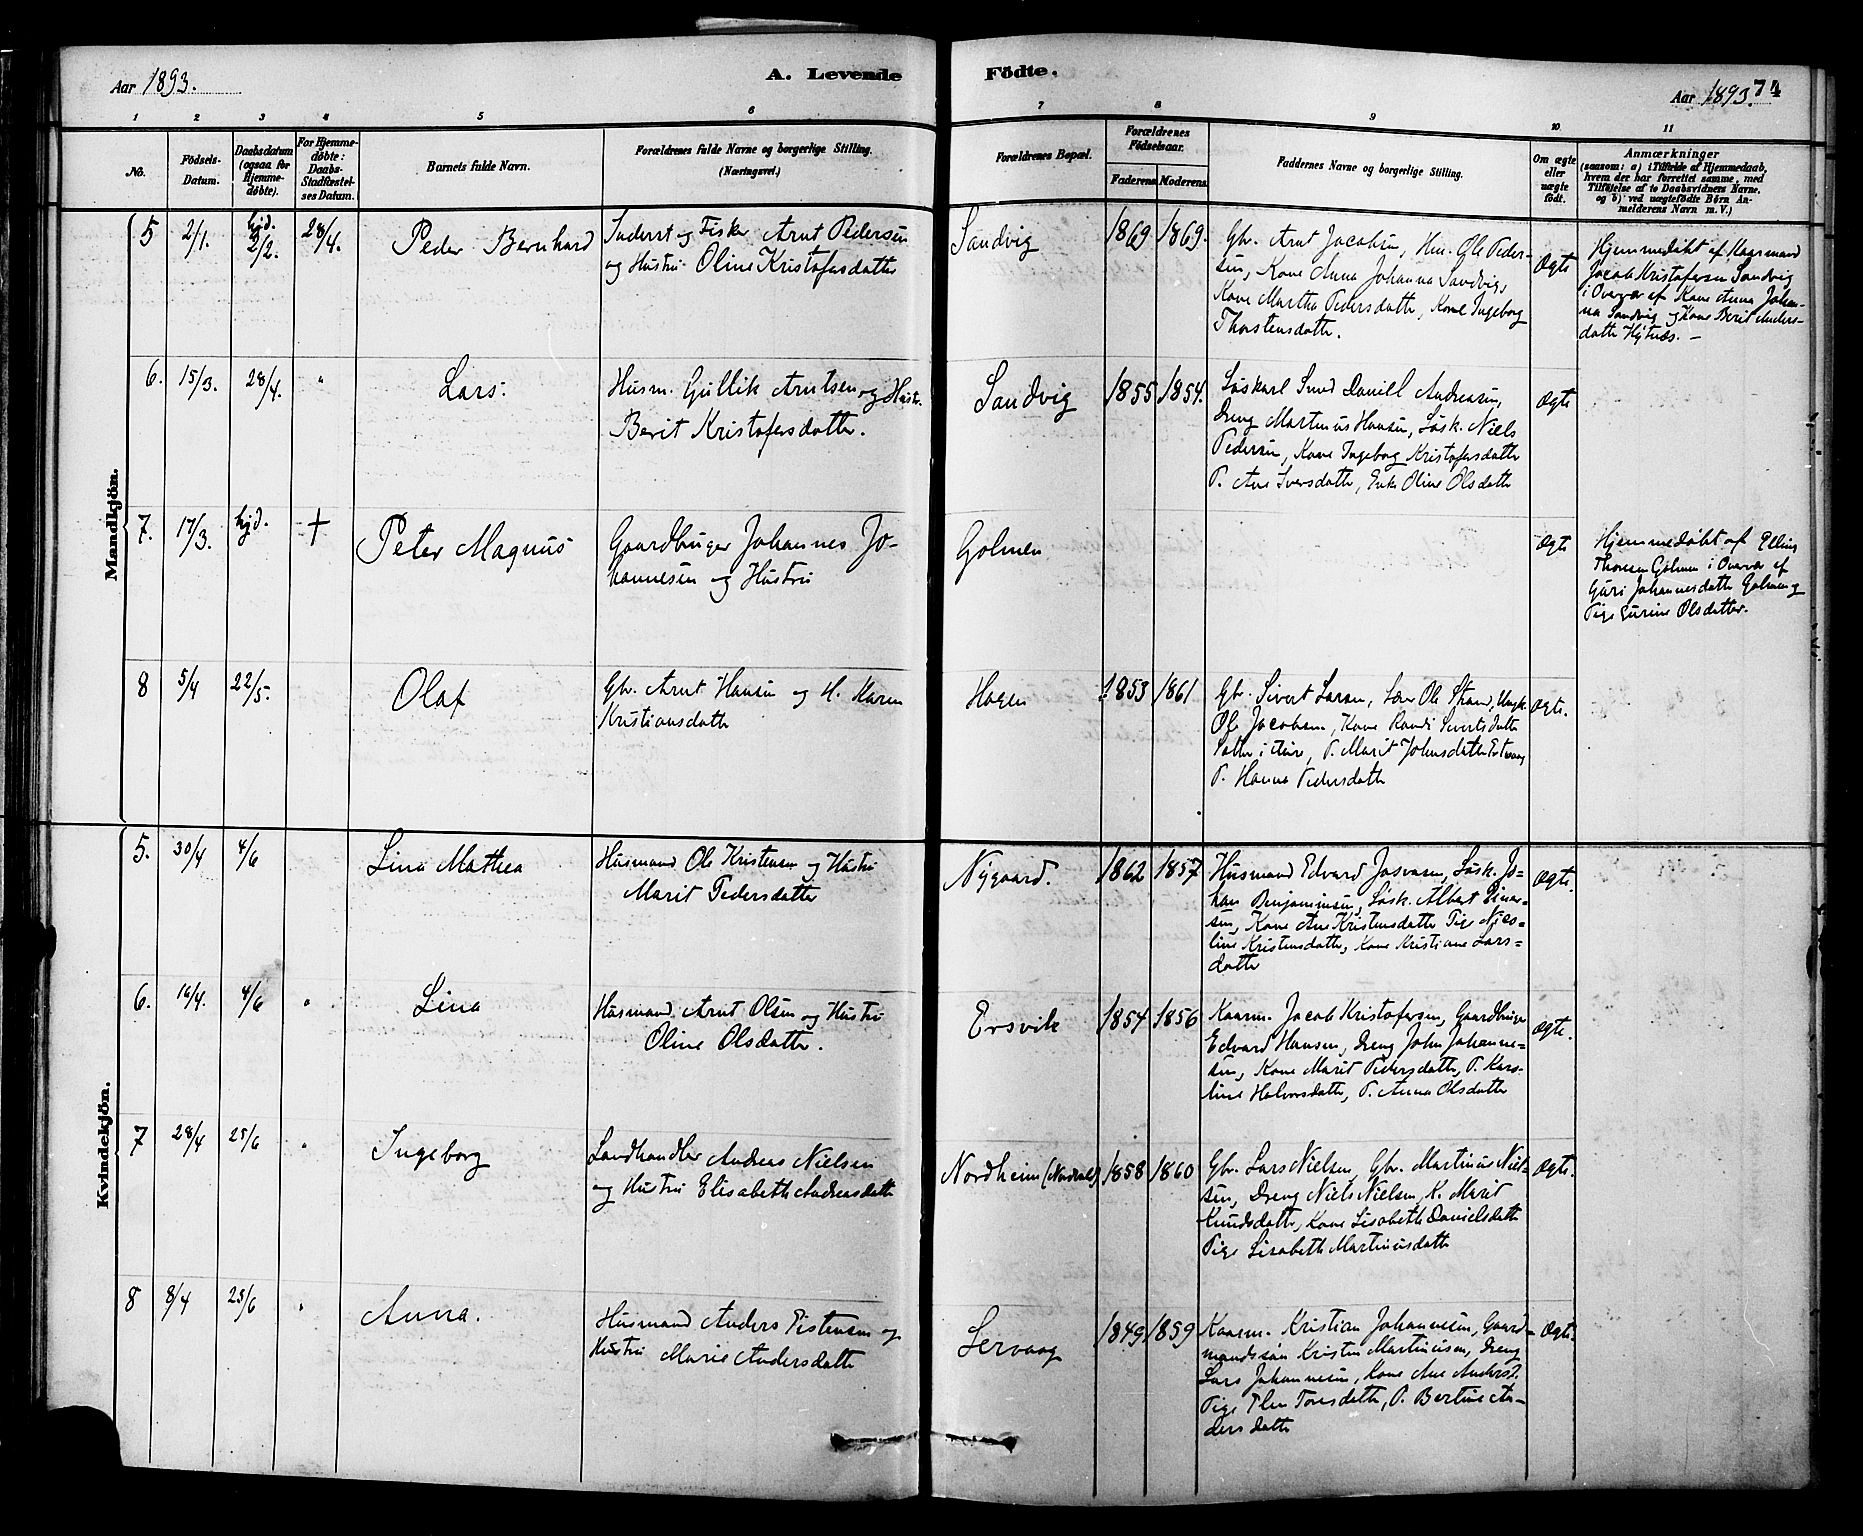 Aar 1893.
A. Levende Födte.
Aar 1893. 74
1 2 3 4 5 6 7 8 9 10 11
No.
Födsels-Datum.
Daabsdatum (ogsaa for Hjemme-döbte).
For Hjemme-döbte: Daabs-Stadfæstel-ses Datum.
Barnets fulde Navn.
Forældrenes fulde Navne og borgerlige Stilling.
(Næringsvei.)
Forældrenes Bopæl.
Forældrenes Födselsaar.
Faderens Moderens
Faddernes Navne og borgerlige Stilling.
Om ægte eller uægte födt.
Anmærkninger
(saasom: a) i Tilfælde af Hjemmedaab, hvem der har forrettet samme, med Tilföielse af to Daabsvidners Navne, og b) ved uægtefödte Börn An-melderens Navn m. V.)
Mandkjön.
5 2/1. hjd. 2/2. 28/4. Peder Bernhard
Inderst og Fisker Arnt Pedersen
og Hustru Oline Kristofersdatter
Sandvig 1869 1869.
Gbr. Arnt Jacobsen, Hm. Ole Peder-
sen, Kone Anna Johanna Sandvig,
Kone Martha Pedersdatter, Kone Ingeborg
Thorstensdatter.
Ægte
Hjemmedøbt af Kaarmand
Jacob Kristofersen Sandvig
i Overvær af Kone Anna Johan-
na Sandvig og Kone Berit Anders-
datter
6. 15/3. 28/4. " Lars.
Husm. Gullik Arntsen og Hustr.
Berit Kristofersdatter.
Sandvig 1855 1854.
Løskarl Daniel Andreasen,
Dreng Martinus Hansen, Løsk. Niels
Pedersen, Kone Ingeborg Kristofersdatter
P. Ane Iversdatter, Enke Oline Olsdatter
Ægte
7. 17/3. hjd. + Peter Magnus
Gaardbruger Johannes Jo-
hannesen og Hustru
Golmen
Ægte
Hjemmedøbt af Elling
Golmen i Overvær af
Guri Johannesdatter Golmen og
Pige Gurine Olsdatter.
8 5/4 22/5. Olaf
Gbr. Arnt Hansen og H. Karen
Kristiansdatter
Hagen 1853 1861
Gbr. Sivert Larsen, Lærer Ole Strand, Ungk.
Ole Jacobsen, Kone Randi Sivertsdatter
P. Marit Johnsdatter
P. Hanna Pedersdatter
Ægte.
Kvindekjön.
5. 30/4 4/6 Lina Mathea
Husmand Ole Kristensen og Hustru
Marit Pedersdatter
Nygaard. 1862 1857
Husmand Edvard Løsk. Jo-
han Benjaminsen, Løsk. Albert Einar-
sen, Kone Ane Kristensdatter Pige
line Kristensdatter, Kone Kristiane Lars-
datter
Ægte.
6. 16/4. 4/6 " Lina
Husmand Arnt Olsen og Hustru
Oline Olsdatter.
Ersvik 1854 1856
Kaarm. Jacob Kristofersen, Gaardbruger
Edvard Hansen, Dreng John Johanne-
sen, Kone Marit Pedersdatter, P. Karo-
line Halvorsdatter, P. Anna Olsdatter
Ægte.
7 28/4 25/6 " Ingeborg
Landhandler Andreas Nielsen
og Hustru Elisabeth Andreasdatter
Nordheim 1858 1860
Gbr. Lars Nielsen, Gbr. Martinus Niel-
sen, Dreng Niels Nielsen, K. Marit
Knudsdatter, Kone Lisabeth Danielsdatter
Pige Lisabeth Martinusdatter
Ægte.
8 8/4 25/6 " Anna.
Husmand Anders Eistensen og
Hustru Marie Andersdatter
Lervaag 1849 1859
Kaarm. Kristian Johannesen, Gaard-
mandssøn Kristen Martinusen, Dreng
Lars Johannesen, Kone Ane Andersd.
Pige Elen P. Bertine An-
dersdatter
Ægte.